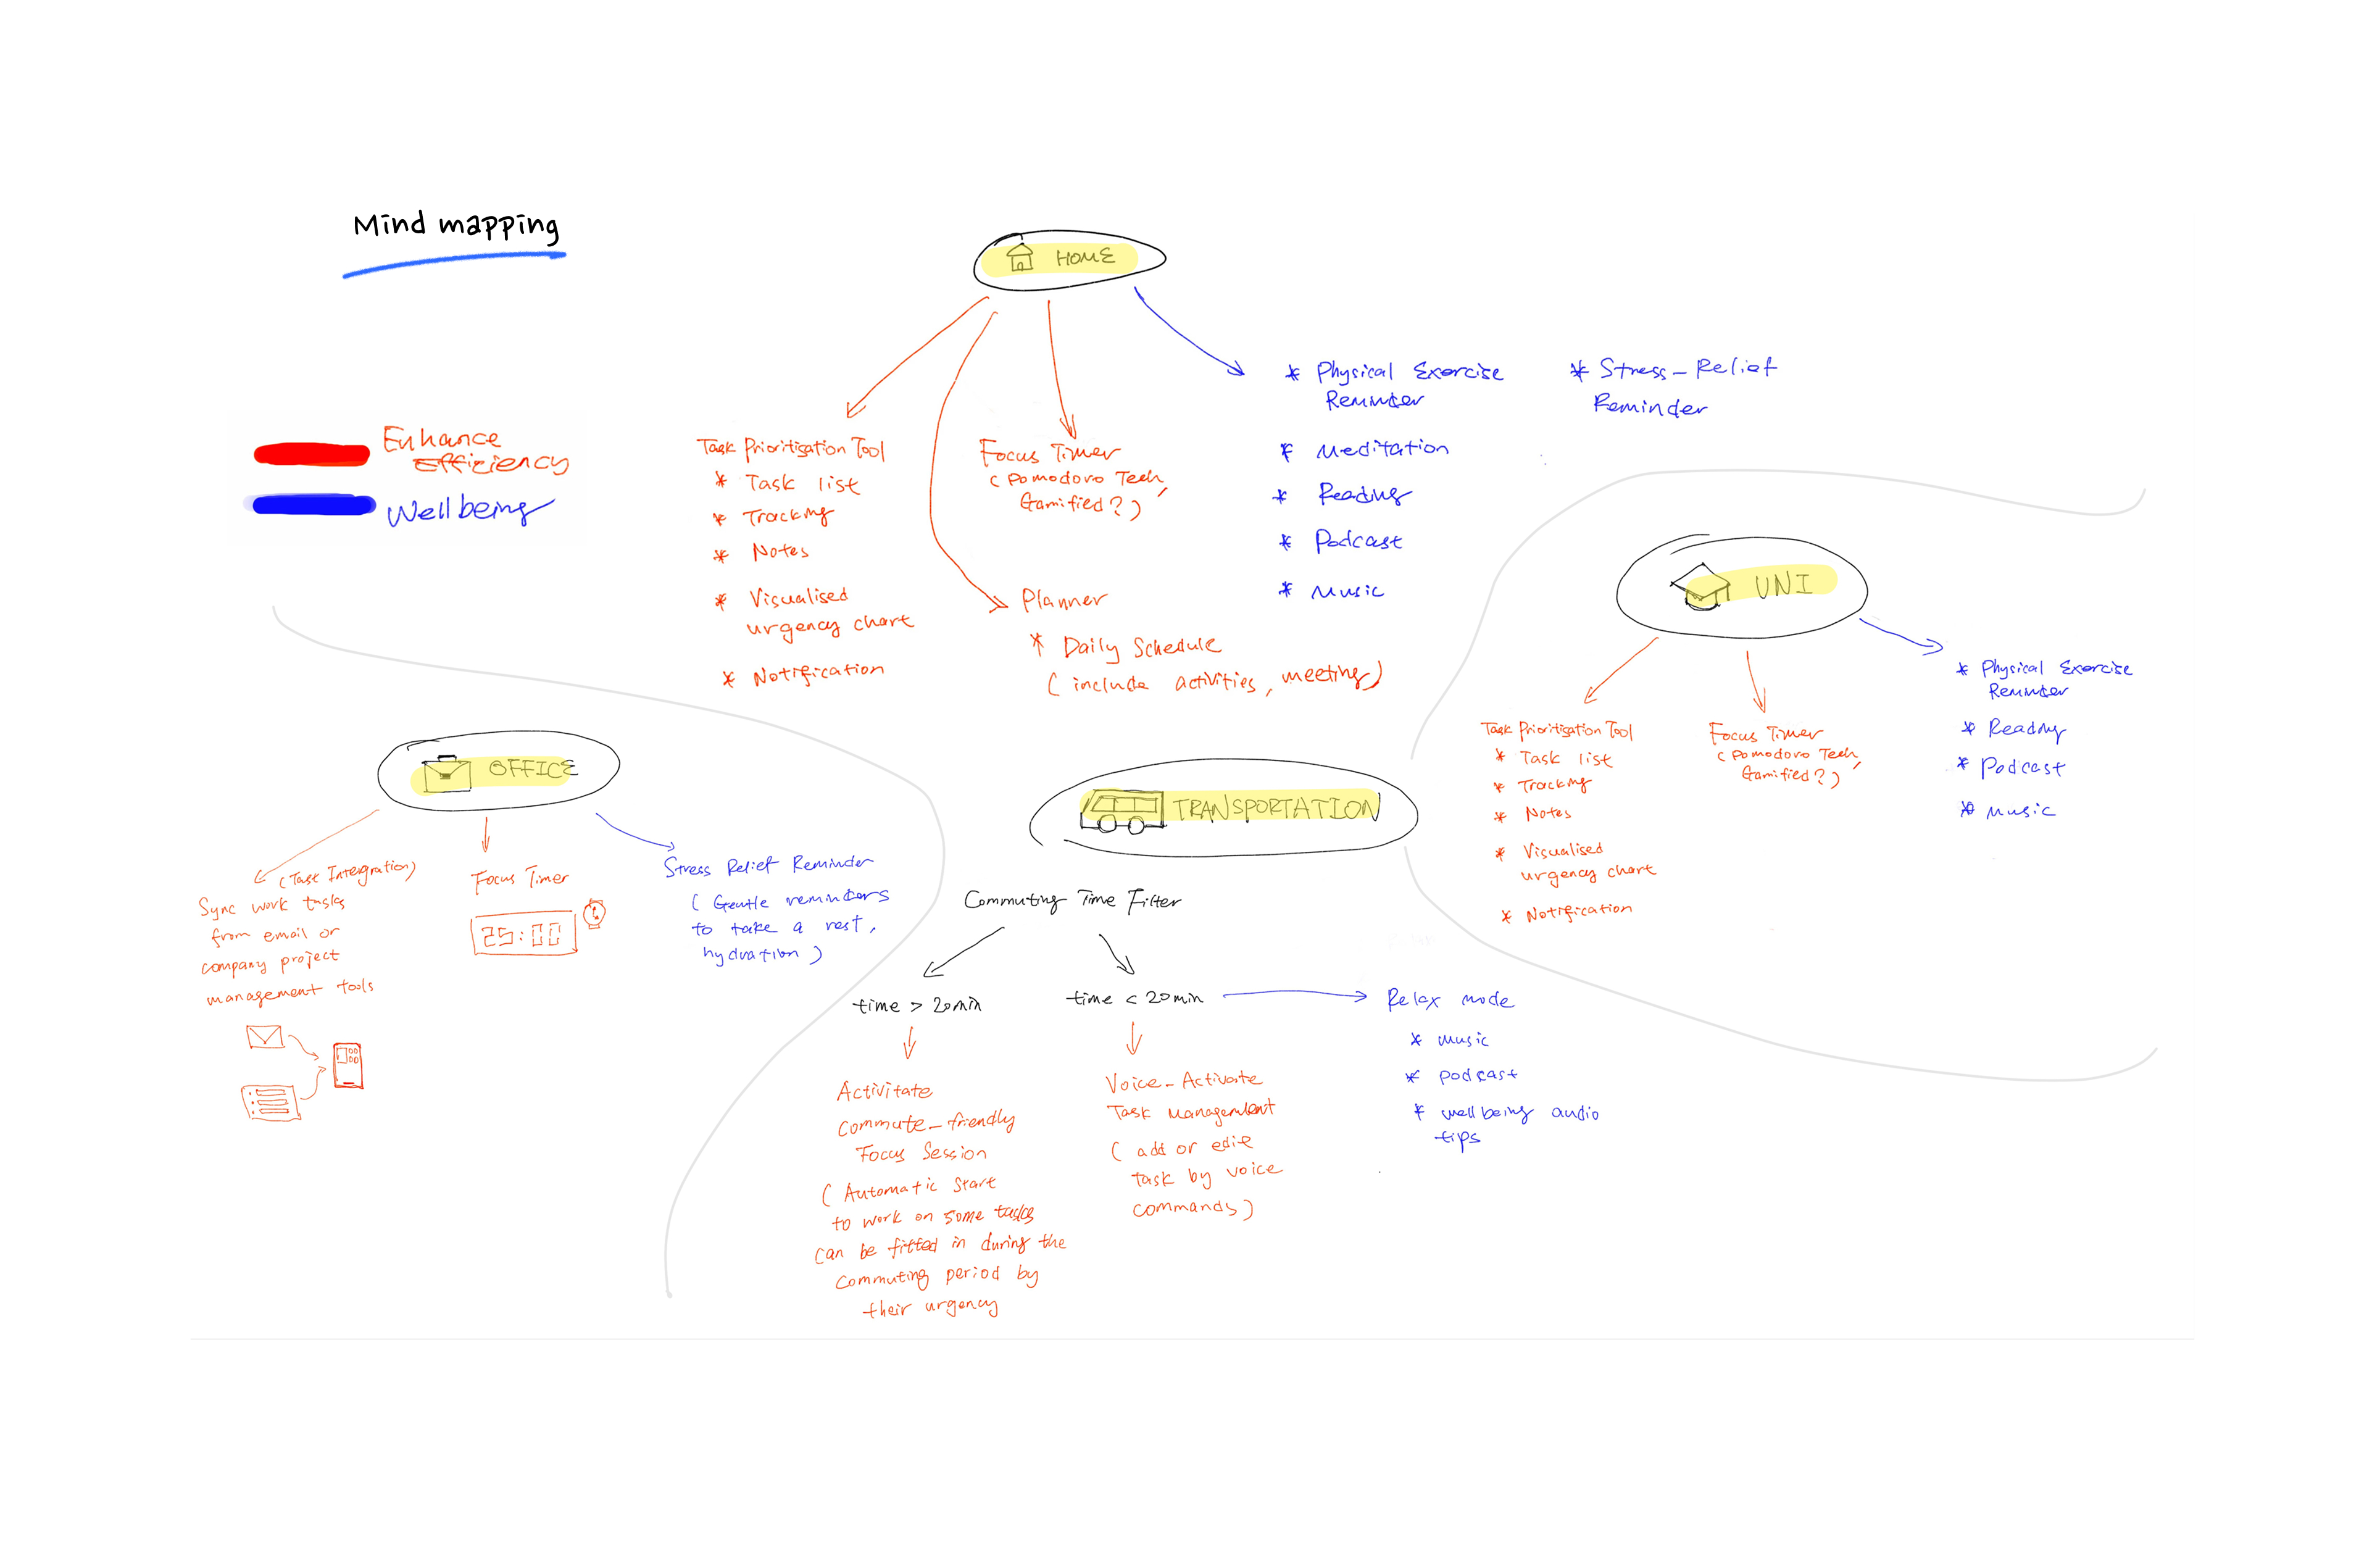 Mind mapping
Enhance
Efficiency
Wellbeing
HOME
Task Prioritisation Tool
* Task list
* Tracking
* Notes
* Visualised
urgency chart
* Notification
Focus Timer
(Pomodoro Tech,
Gamified?)
Planner
* Daily Schedule
(include activities, meeting)
* Physical Exercise
Reminder
* Meditation
* Reading
* Podcast
* Music
* Stress-Relief
Reminder
UNI
Task Prioritisation Tool
* Task list
* Tracking
* Notes
* Visualised
urgency chart
* Notification
Focus Timer
(Pomodoro Tech,
Gamified?)
* Physical Exercise
Reminder
* Reading
* Podcast
* Music
OFFICE
(Task Intergration)
Sync work tasks
from email or
company project
management tools
Focus Timer
25:00
Stress Relief Reminder
(Gentle reminders
to take a rest,
hydration)
TRANSPORTATION
Commuting Time Filter
time > 20min
Activitate
Commute-friendly
Focus Session
(Automatic Start
to work on some tasks
can be fitted in during the
commuting period by
their urgency
time < 20min
Voice-Activate
Task Management
(add or edit
task by voice
commands)
Relax mode
* music
* podcast
* wellbeing audio
tips